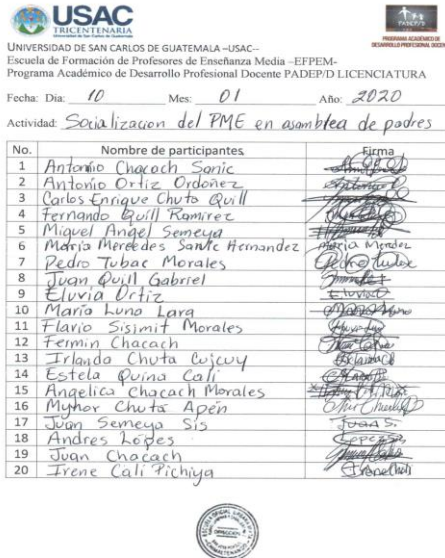 USAC
TRICENTENARIA
Universidad de San Carlos de Guatemala
PADEP/D
PROGRAMA ACADÉMICO DE
DESARROLLO PROFESIONAL DOCENTE
UNIVERSIDAD DE SAN CARLOS DE GUATEMALA –USAC--
Escuela de Formación de Profesores de Enseñanza Media –EFPEM-
Programa Académico de Desarrollo Profesional Docente PADEP/D LICENCIATURA
Fecha: Dia: 10 Mes: 01 Año: 2020
Actividad: Socialización del PME en asamblea de padres
No. Nombre de participantes Firma
1 Antonio Chacach Sanic
2 Antonio Ortiz Ordoñez
3 Carlos Enrique Chuta Quill
4 Fernando Quill Ramirez
5 Miquel Angel Semeya
6 Maria Mercedes Hernandez Maria Mercedes
7 Pedro Tubac Morales Pedro Tubac
8 Juan Quill Gabriel
9 Eluvia Ortiz Eluvia O
10 Maria Luna Lara
11 Flavio Sisimit Morales
12 Fermin Chacach
13 Irlanda Chuta
14 Estela Quina Cali
15 Angelica Chacach Morales
16 Mynor Chuta Apén
17 Juan Semeya Sis Juan S.
18 Andres Lopes
19 Juan Chacach
20 Irene Cali Pichiya Irene Cali